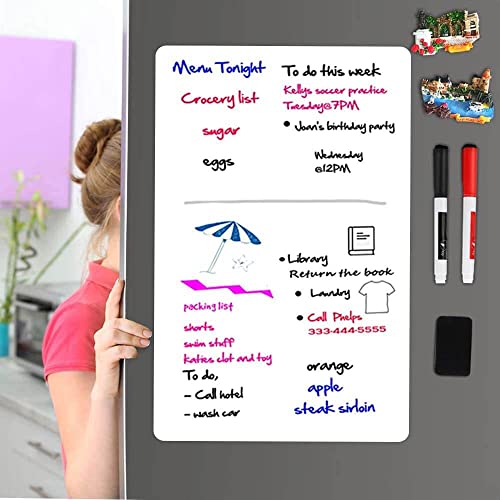 Menu Tonight
Crocery list
sugar
eggs
To do this week
Kellys soccer practice
Tuesday@7PM
• Joan's birthday party
Wednesday
@12PM
packing list
shorts
swim stuff
Katies clot and toy
To do,
- Call hotel
- wash car
• Library
Return the book
• Laundry
• Call Phelps
333-444-5555
orange
apple
steak sirloin